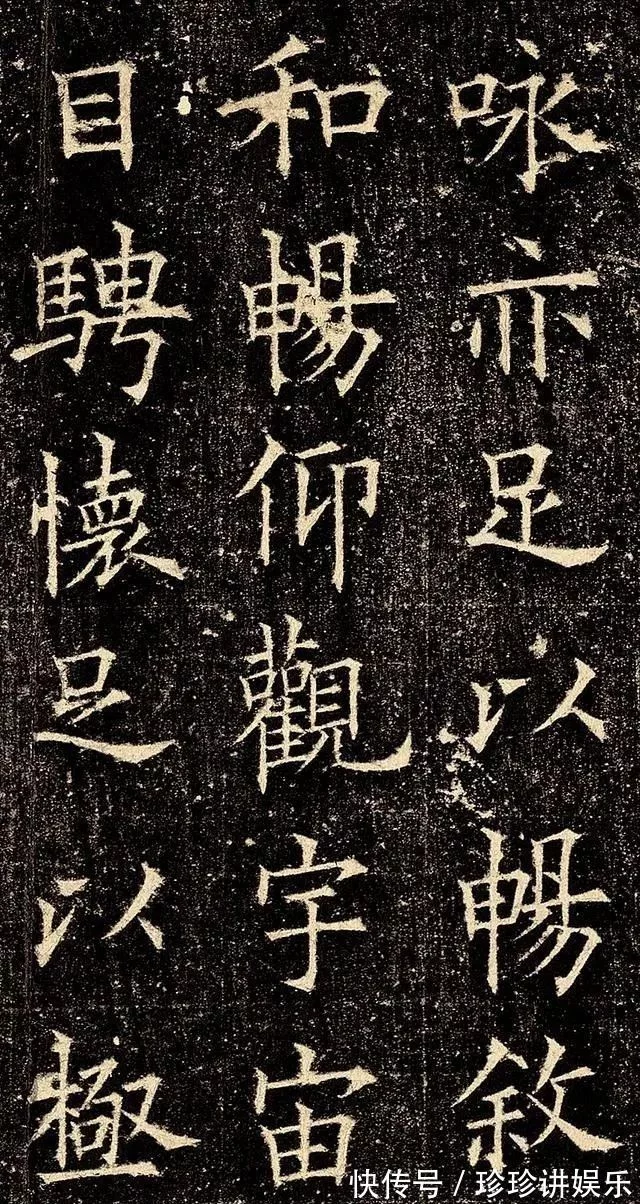 咏亦足以暢敘
和暢仰觀宇宙
目騁懷足以極
快传号 / 珍珍讲娱乐